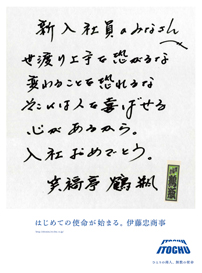 新入社員のみなさん
世渡り上手を恐がるな
変わることを恐れるな
そこには人を喜ばせる
心があるから。
入社おめでとう。
笑福亭 鶴瓶
はじめての使命が始まる。伊藤忠商事
ITOCHU
ひとりの商人、無数の使命